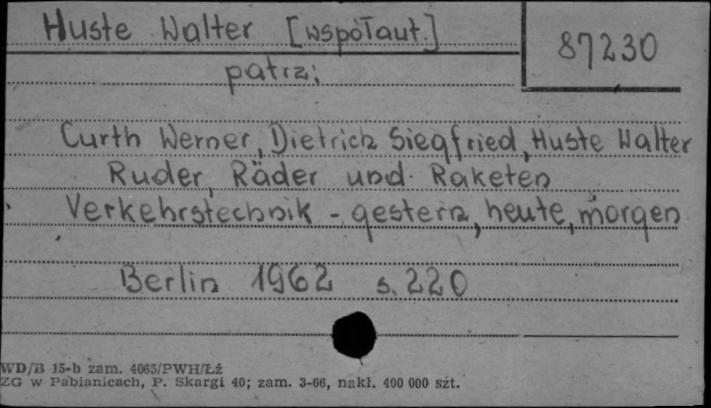 Huste Walter [współaut.]
87230
patrz:
Curth Werner, Dietrich Siegfried, Huste Walter
Ruder, Räder und Raketen
Verkehrstechnik - gestern, heute, morgen
Berlin 1962 s. 220
WD/B 15-b zam. 4065/PWH/Łź
ZG w Pabianicach, P. Skargi 40; zam. 3-66, nakł. 400 000 szt.